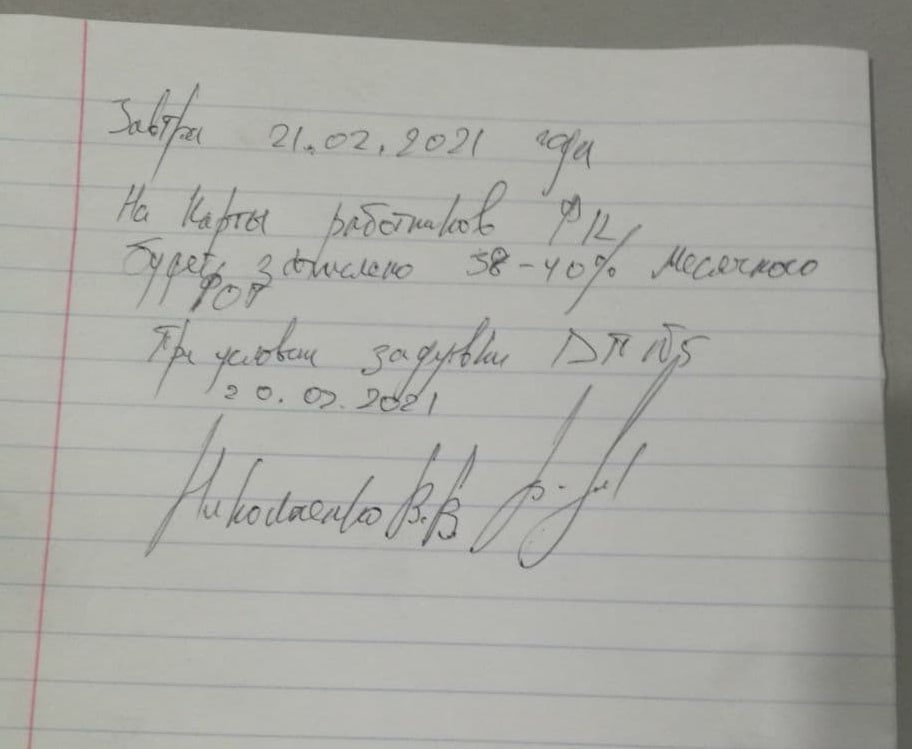 Завтра 21.02.2021 года
На карты работников ФК
будет зачислено 38-40% месячного
ФОТ
При условии задувки ДП №5
20.02.2021
Николаенко В.В.